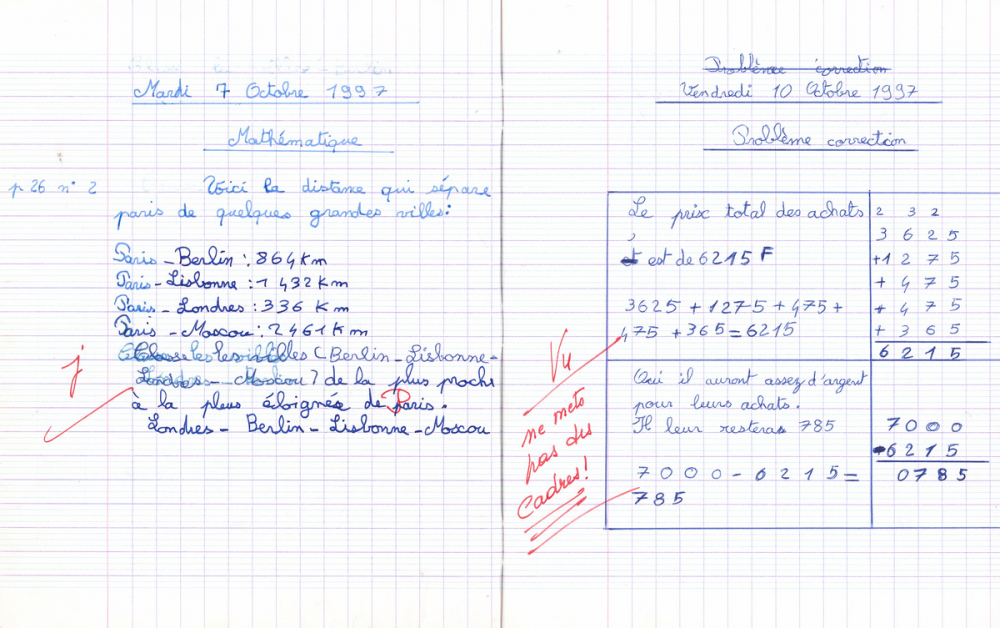 Mardi 7 Octobre 1997
Mathématique
p 26 n° 2 Voici la distance qui sépare
paris de quelques grandes villes:
Paris - Berlin : 864 km
Paris - Lisbonne : 1 432 Km
Paris - Londres : 336 Km
Paris - Moscou : 2 461 Km
Classe les villes (Berlin - Lisbonne -
Londres - Moscou) de la plus proche
j
à la plus éloignée de Paris.
Londres - Berlin - Lisbonne - Moscou
Problème correction
Vendredi 10 Octobre 1997
Problème correction
Le prix total des achats
est de 6215 F
3625 + 1275 + 475 +
475 + 365 = 6215
2 3 2
3 6 2 5
+1 2 7 5
+ 4 7 5
+ 4 7 5
+ 3 6 5
6 2 1 5
Vu
ne mets
pas des
Cadres!
Oui il auront assez d'argent
pour leurs achats.
Il leur resteras 785
7 0 0 0 - 6 2 1 5 =
7 8 5
7 0 0 0
- 6 2 1 5
0 7 8 5